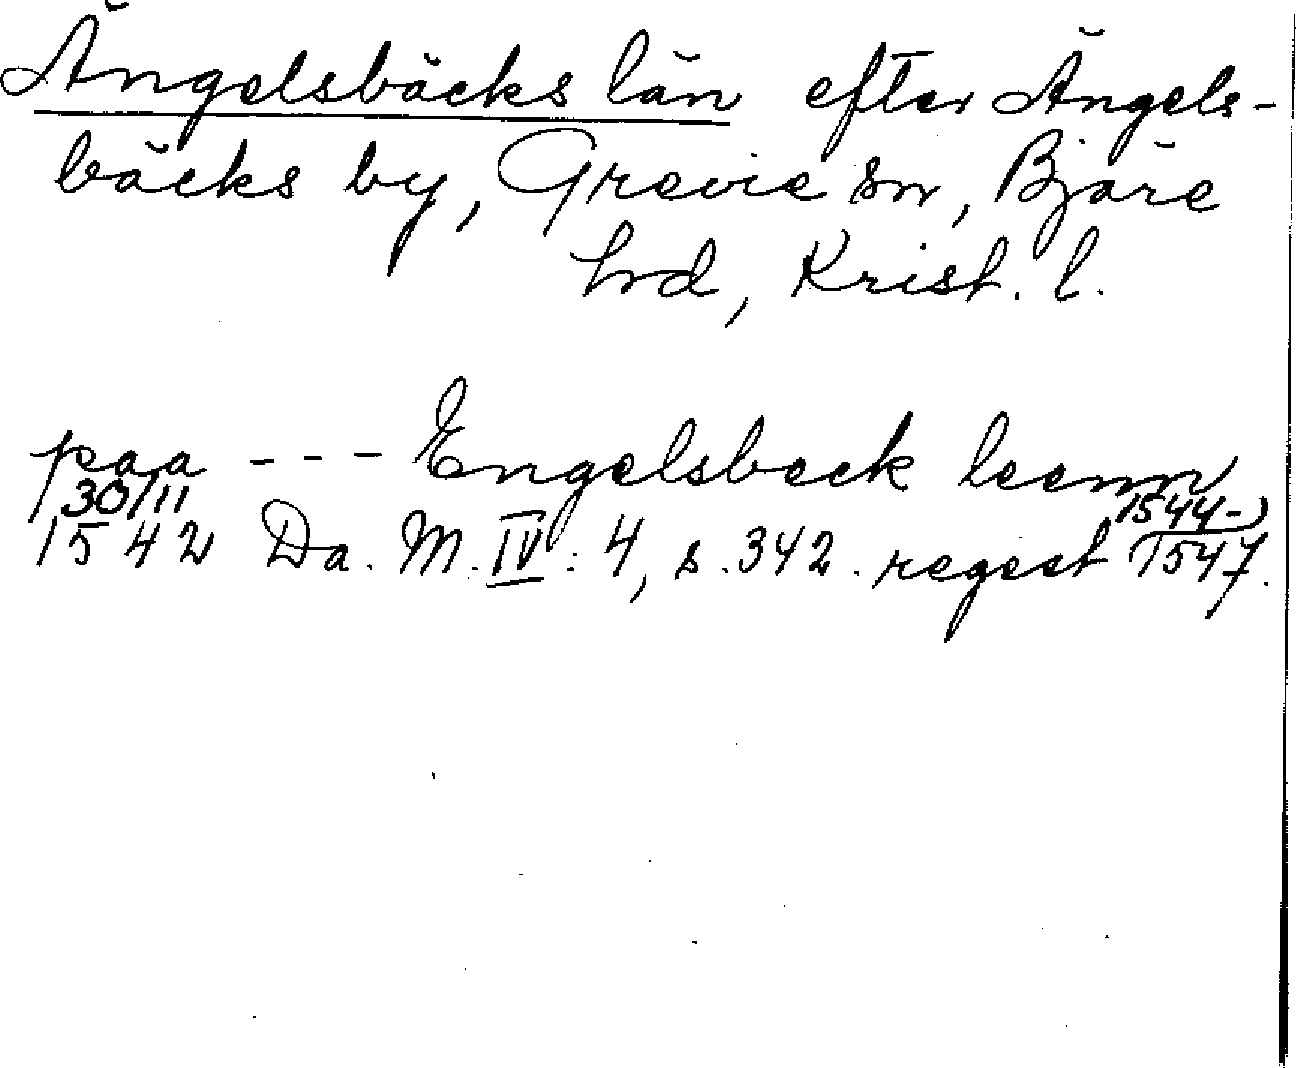 Ängelsbäcks län efter Ängels-
bäcks by, Grevie sn, Bjäre
hrd, Krist. l.
paa - - - Engelsbeck leenn
30/11
1542 Da. M. IV: 4, s. 342. regest 1544-
1547.